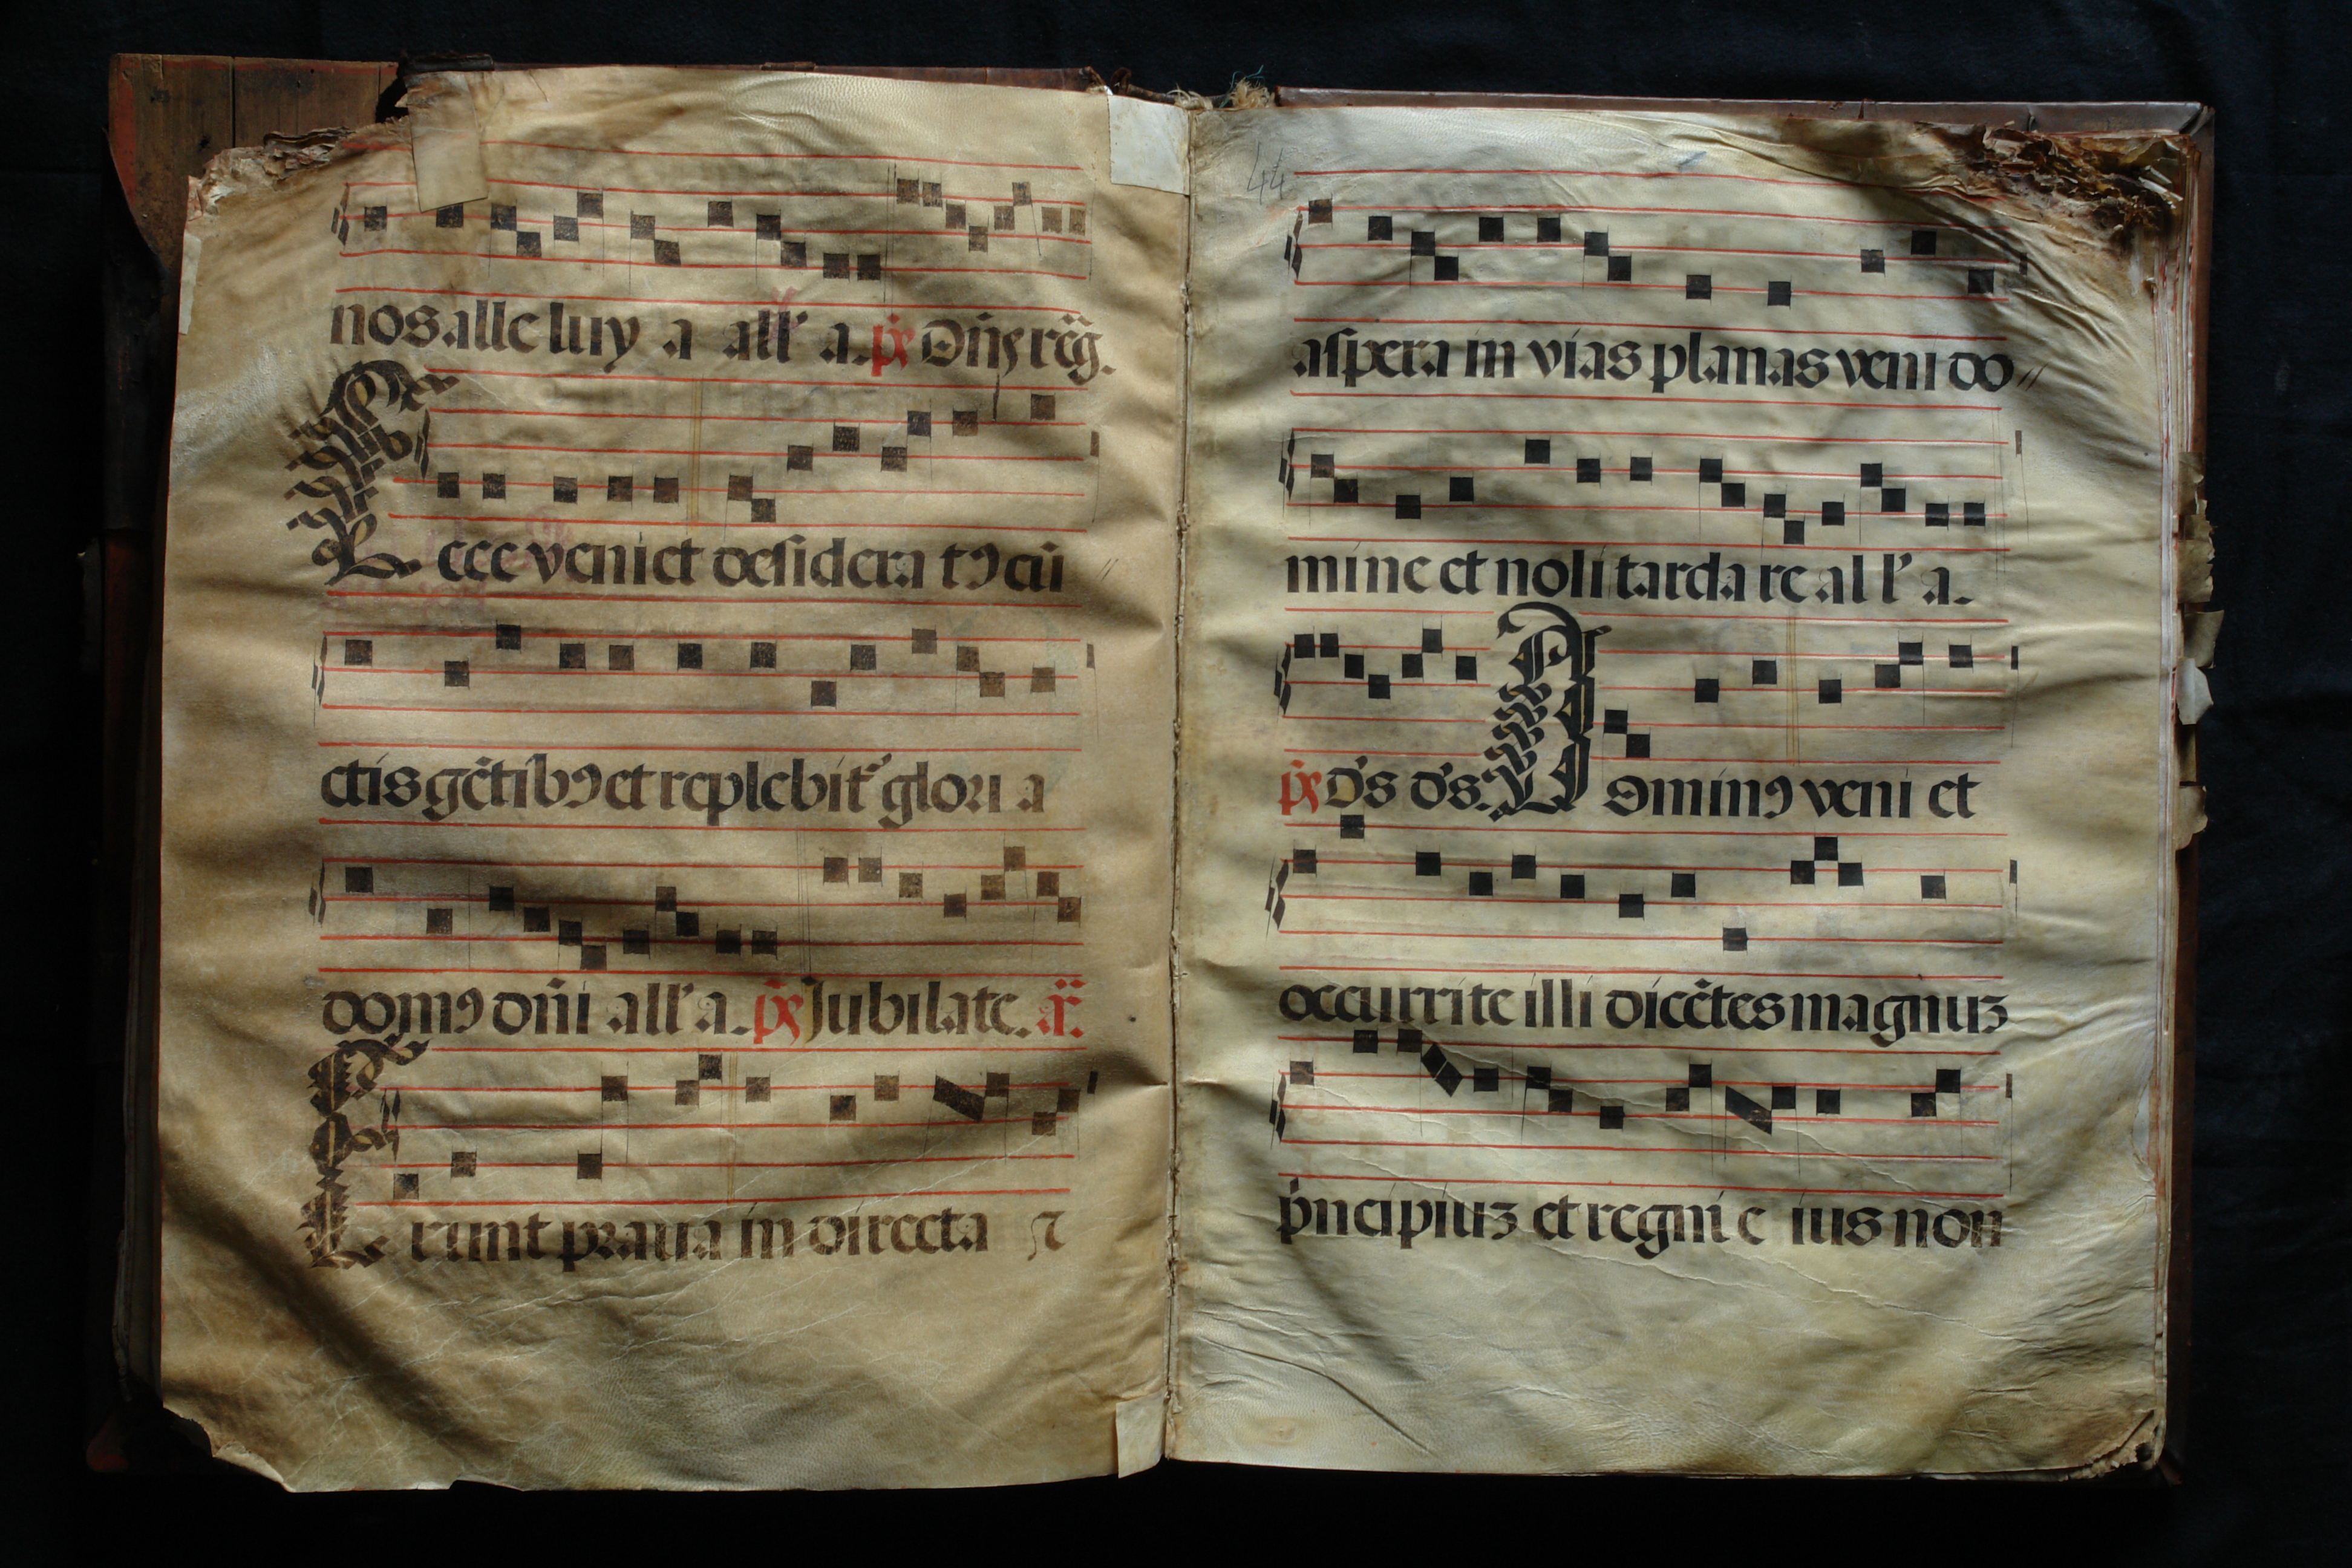 nos alle luy a all' a. p̃s Dñs reg̃.
Ecce veniet desidera tꝯ cũ
ctis gẽtibꝯ et replebit᷑ glori a
domꝯ dñi all' a. p̃s Jubilate. añ.
Erunt praua in directa ⁊
44
aspera in vias planas veni do
mine et noli tarda re al l' a.
p̃s d's d's. Dominꝯ veni et
occurrite illi dicẽtes magnuz
p̍ncipiuz et regni e ius non